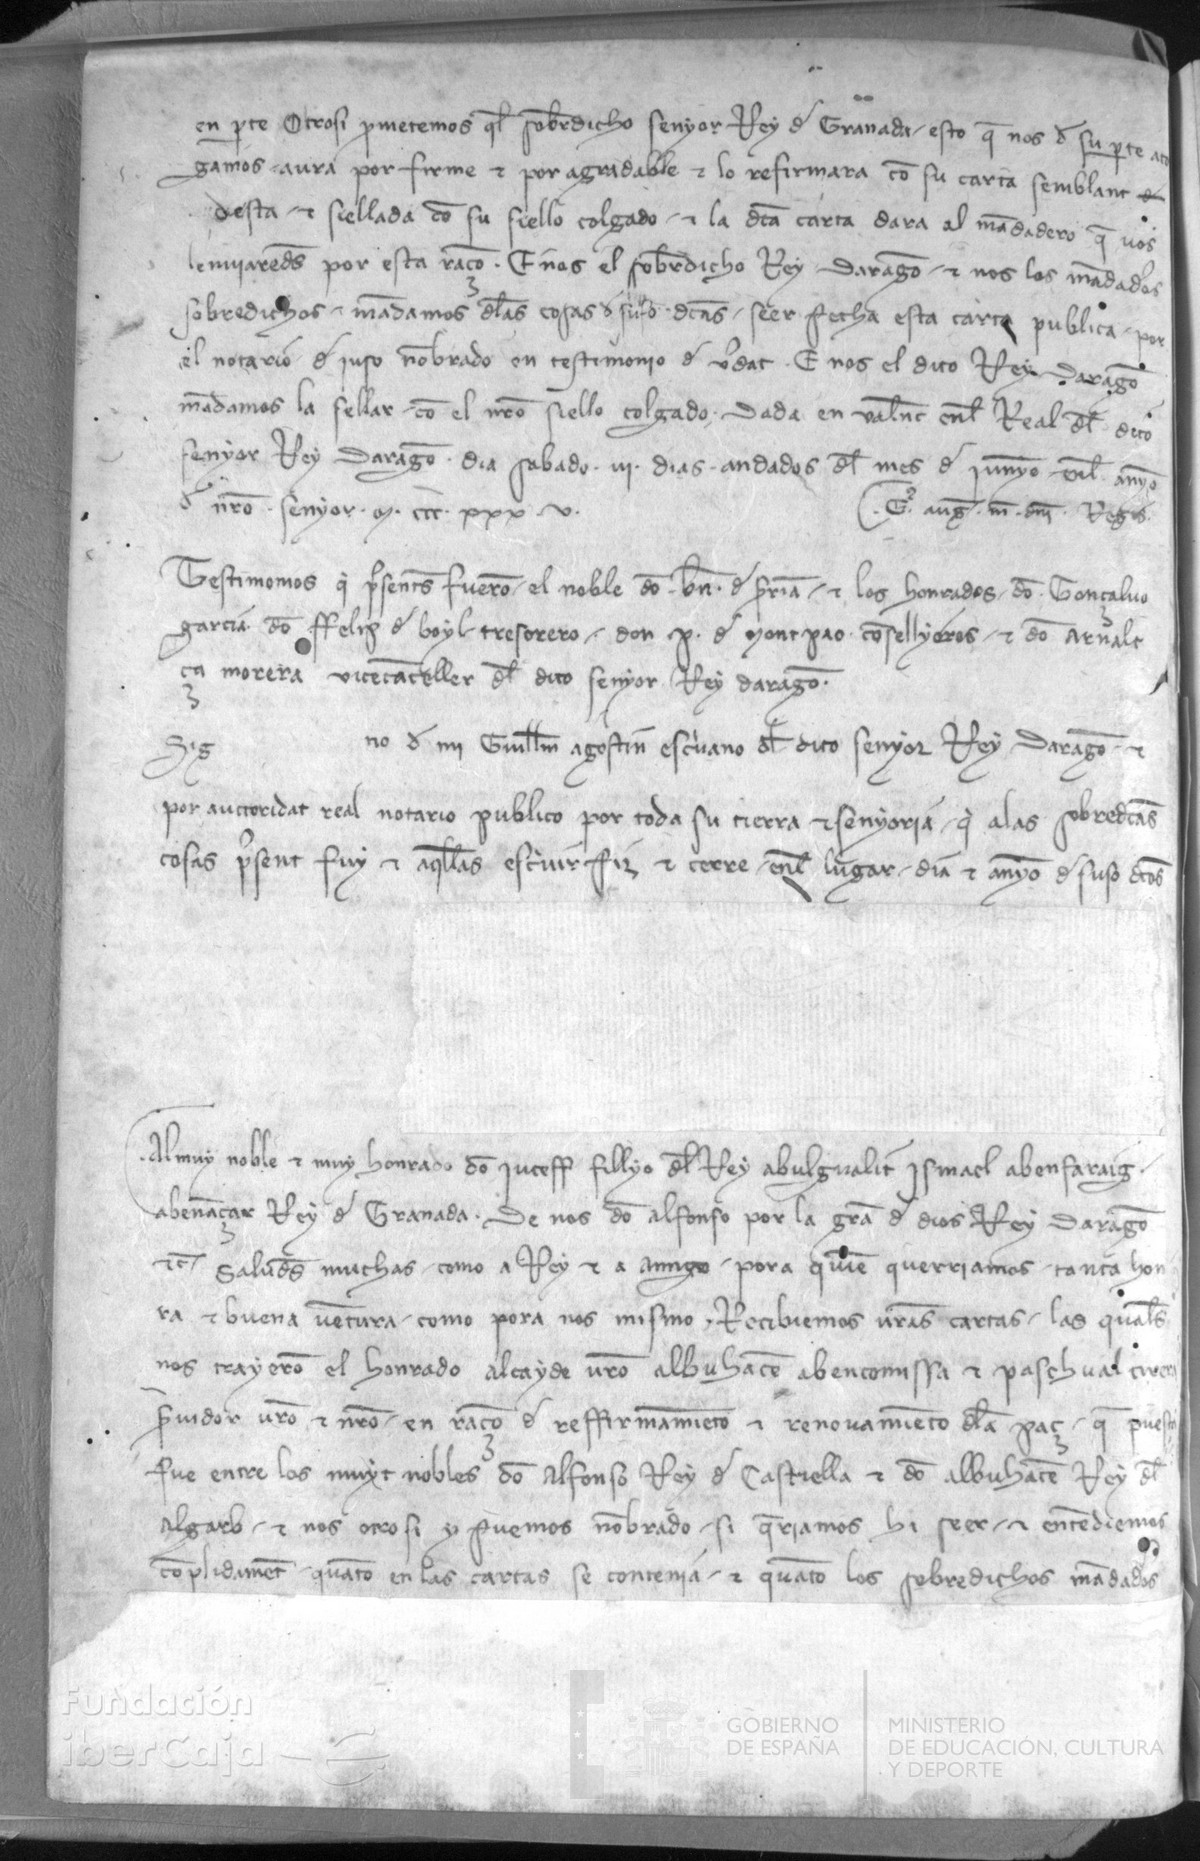 en pte Otrosi pmetemos ql sobredicho senyor Rey d Granada / esto q nos d su pte ato
gamos aura por firme τ por agradable τ lo refirmara co su carta semblant
desta / τ siellada co su siello colgado / τ la dca carta dara al madadero q uos
lenuiareds por esta raço. E nos el sobredicho Rey Darago / τ nos los madados
sobredichos / madamos dlas cosas d suso dcas / seer fecha esta carta publica / por
el notario d iuso nobrado en testimonio d vdat. E nos el dito Rey Darago
madamos la sellar co el nro siello colgado. Dada en valnc enl Real dl dito
senyor Rey Darago dia sabado. iii. dias andados dl mes d iunyo enl anyo
d nro senyor. m. ccc. xxx. v. G. aug. m. dni. Regis.
Testimonios q psents fuero / el noble do. bn. d sria / τ los honrados / do. Goncaluo
garcia. do ffelip d boyl tresorero / don p. d Montpao. cosellyeros / τ do Arnalt
ça morera vicecanceller dl dito senyor Rey darago.
Sig no d mi Guillm agostin escivano dl dito senyor Rey Darago τ
por auctoridat real notario publico por toda su tierra τ senyoria / q alas sobredcas
cosas psent fuy τ aqllas escivir fiz τ cerre / enl lugar / dia τ anyo d suso dcos
Al muy noble τ muy honrado do Iuceff fillyo dl Rey abulgualit Ismael abenfaraig.
abenaçar Rey d Granada. De nos do alfonso por la gra d dios Rey Darago
τc / Saluds muchas / como a Rey τ a amigo / pora quie querriamos / tanta hon
ra τ buena vetura / como pora nos mismo. Recibiemos vras cartas / las quals
nos trayero el honrado Alcayde vro albuhace abencomissa τ paschual cirera
pvidor vro τ nro / en raço d reffirmamieto τ renouamieto dla paç / q puesta
fue entre los muyt nobles do Alfonso Rey d Castiella τ do albuhace Rey dl
Algarb / τ nos otrosi y fuemos nobrado / si qriamos hi seer / τ entediemos
coplidamet / quato en las cartas se contenia / τ quato los sobredichos madados
Fundación
iberCaja
GOBIERNO
DE ESPAÑA
MINISTERIO
DE EDUCACIÓN, CULTURA
Y DEPORTE